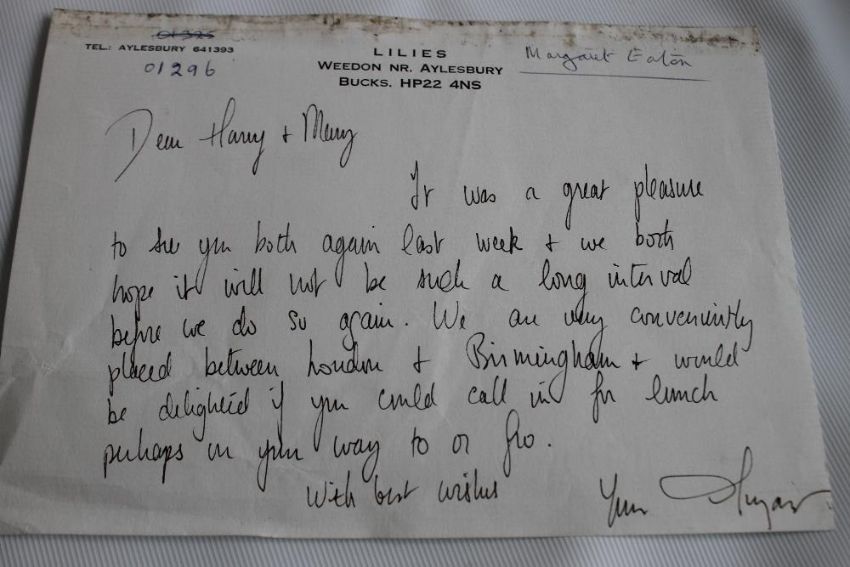 01326
TEL: AYLESBURY 641393
01296
LILIES
WEEDON NR. AYLESBURY
BUCKS. HP22 4NS
Margaret Eaton
Dear Harry & Mary
It was a great pleasure
to see you both again last week & we both
hope it will not be such a long interval
before we do so again. We are very conveniently
placed between London & Birmingham & would
be delighted if you could call in for lunch
perhaps on your way to or fro.
With best wishes
Yours